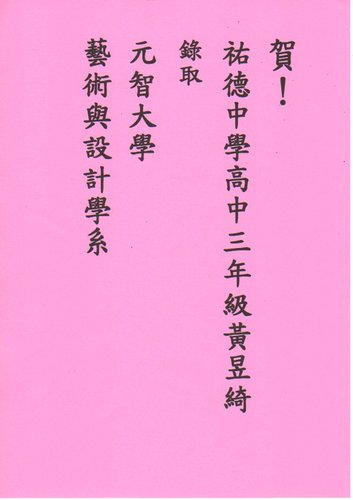 賀！
祐德中學高中三年級黃昱綺
錄取
元智大學
藝術與設計學系